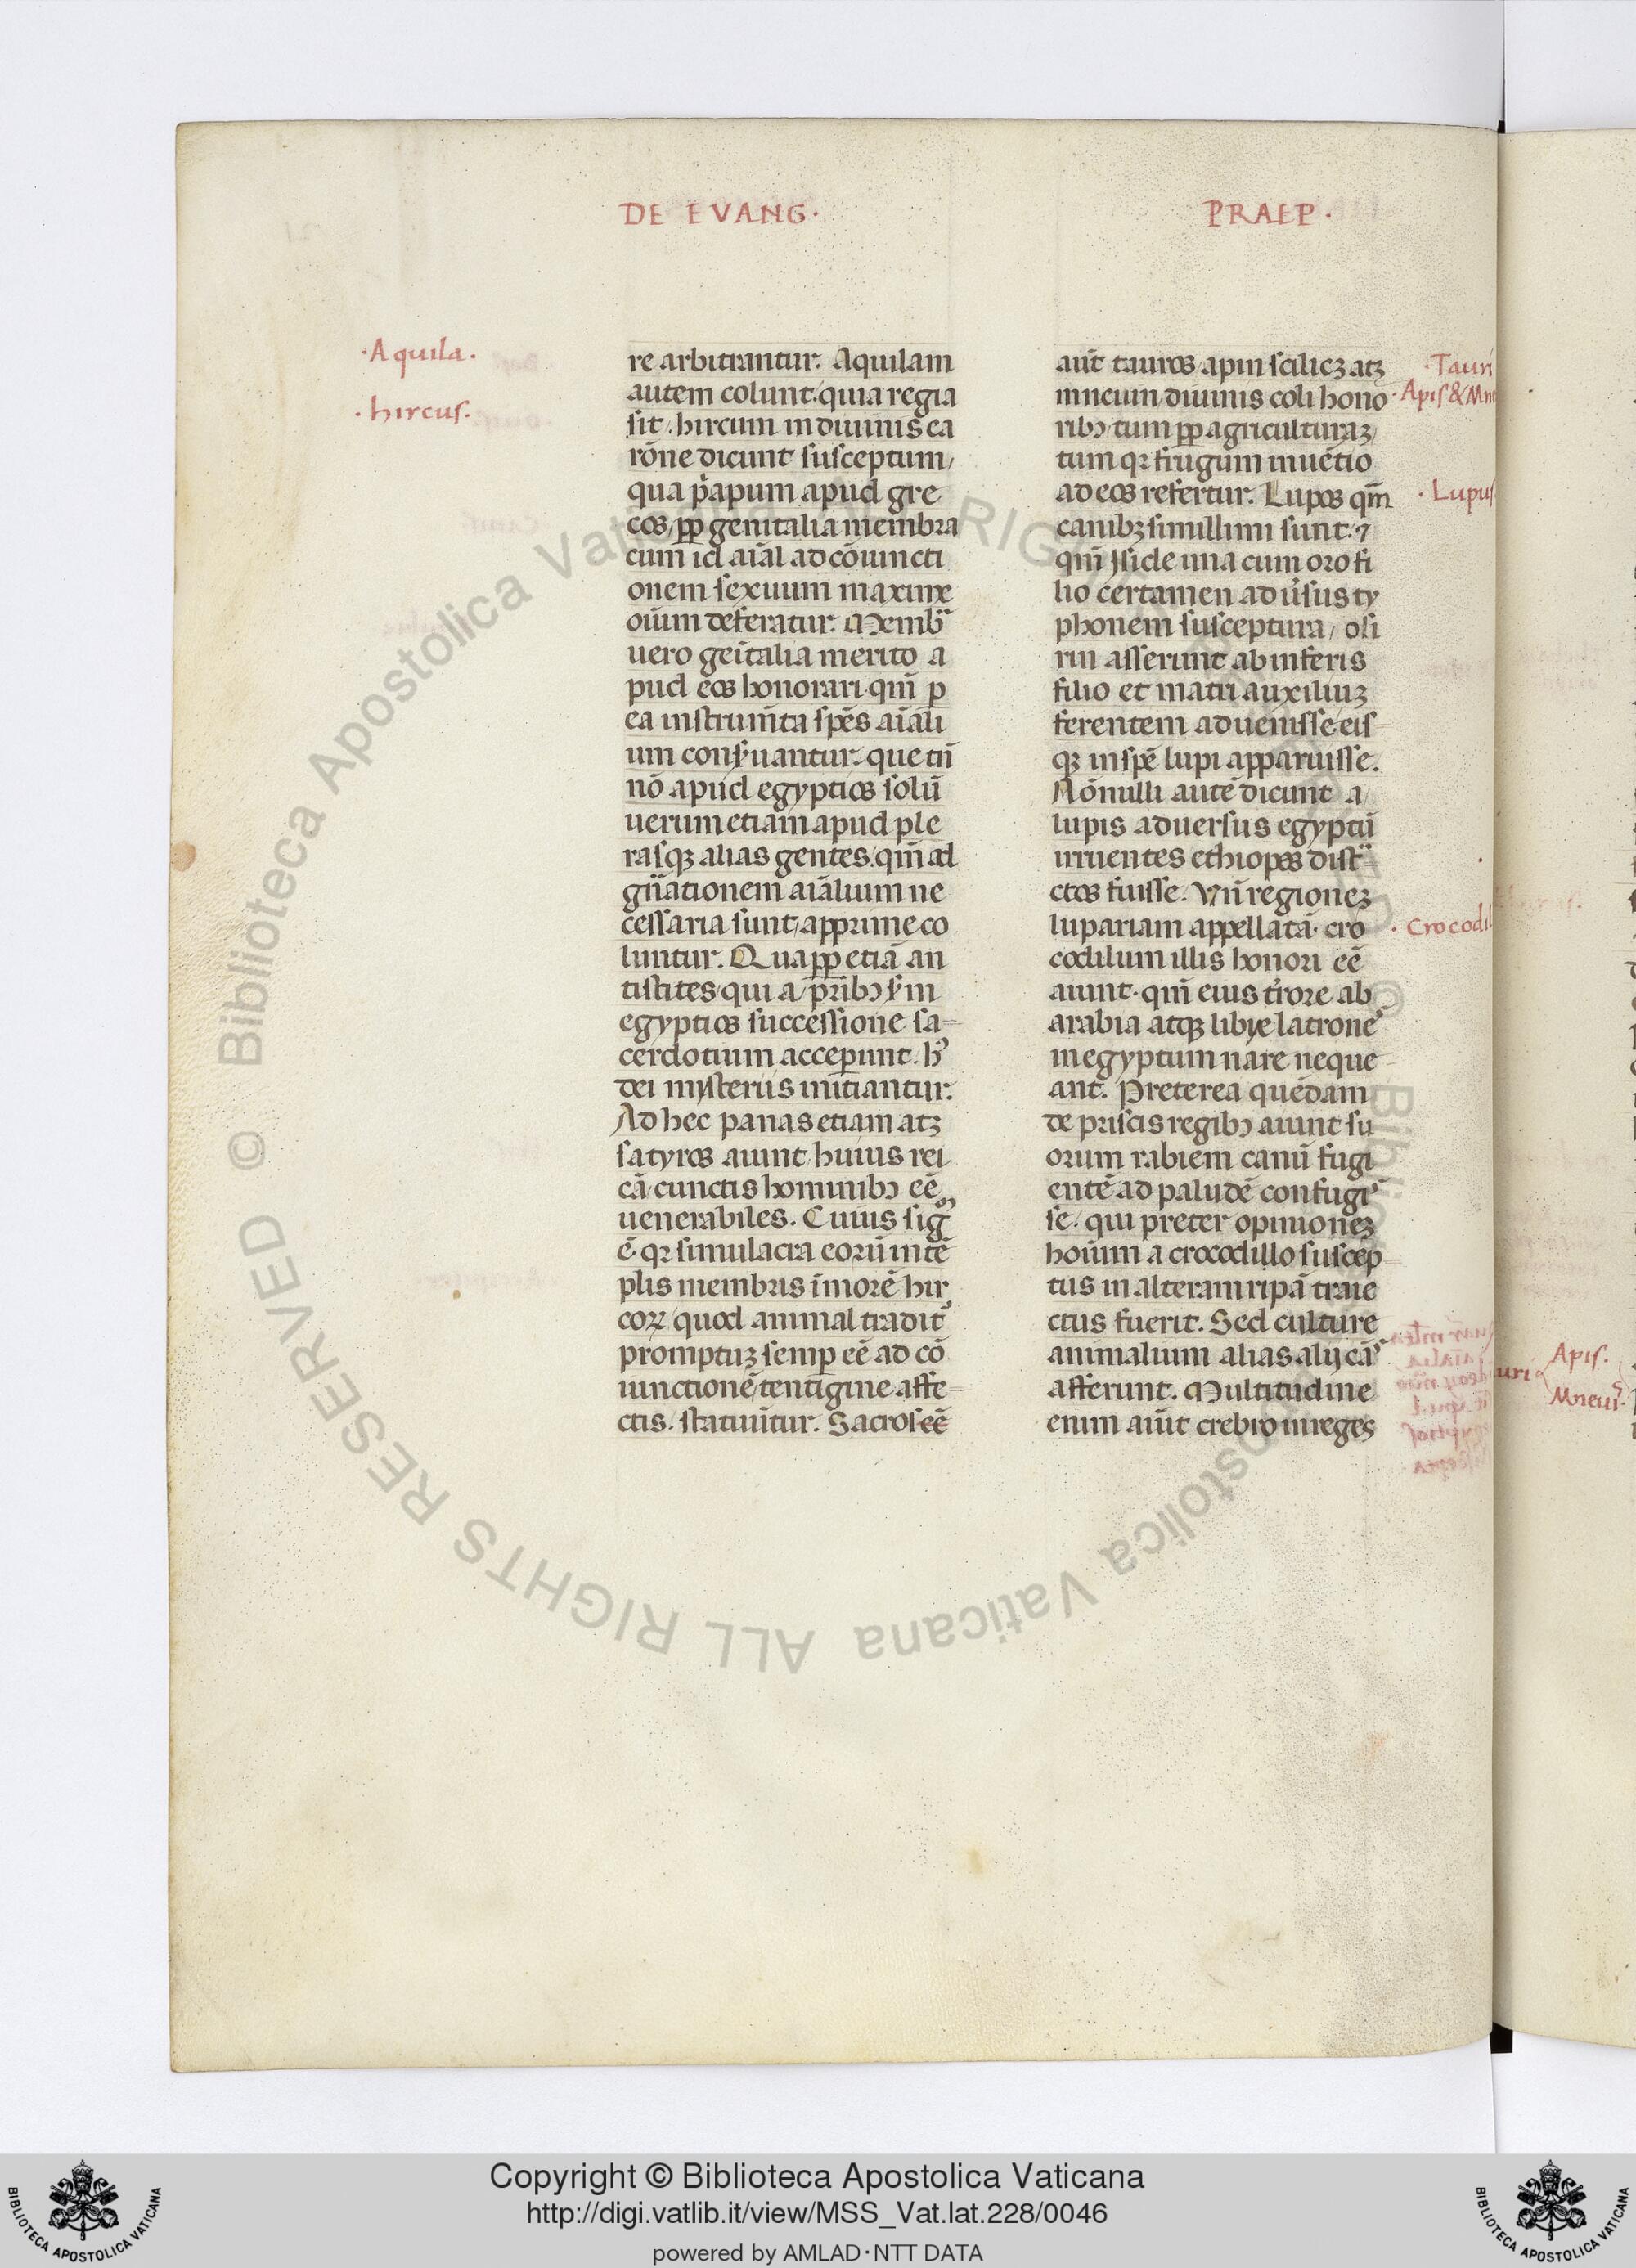 DE EVANG·
PRAEP·
·Aquila·
·hircus·
re arbitrantur. Aquilam
autem colunt quia regia
sit. hircum in diuinis ea
rōne dicunt susceptum,
qua p̄apum apud gre
cos, ꝓp genitalia membra
cum id aīal ad cōiuncti
onem sexuum maxime
oīum deferatur. Memb
uero geītalia merito a
pud eos honorari qm̄ p
ea instrum̄ta spēs aīali
um conẜuantur. que tn̄
nō apud egyptios solū
uerum etiam apud ple
rasqꝫ alias gentes. qm̄ ad
gn̄ationem aīalium ne
cessaria sunt, apprime co
luntur. Quaꝓp etiā an
tistites qui a
egyptios successione sa-
cerdotium acceperunt. hꝰ
dei mysteriis initiantur.
Ad hec panas etiam atꝫ
satyros aiunt huius rei
cā cunctis hominibꝰ eē
uenerabiles. Cuius sig
ē qꝛ simulacra eorū in tē
plis membris ī morē hir
coꝝ quod animal tradit᷒
promptuꝫ semp eē ad cō
iunctionē, tentigine affe-
ctis. statuūtur. Sacros eē
aūt tauros apin scilicꝫ atꝫ
mneum diuinis coli hono
ribꝰ, tum ꝓp agriculturaꝫ,
tum qꝛ frugum inuētio
ad eos refertur. Lupos qm̄
canibꝫ simillimi sunt. ⁊
qm̄ Iside una cum oro fi
lio certamen aduẜsus ty
phonem susceptura, osi
rin asserunt ab inferis
filio et matri auxiliuꝫ
ferentem aduenisse eis
qꝫ in spē lupi apparuisse.
Nōnulli autē dicunt a
lupis aduersus egyptū
irruentes ethiopes dist
ctos fuisse. Vn̄ regioneꝫ
lupariam appellatā. cro
codilum illis honori eē
aiunt. qm̄ eius t̄rore ab
arabia atqꝫ libye latrones
in egyptum nare neque-
ant. Preterea quēdam
de priscis regibꝰ aiunt su
orum rabiem canū fugi
entē ad paludē confugis
se. qui preter opinioneꝫ
hoīum a crocodillo suscep
tus in alteram ripā traie
ctus fuerit. Sed culture
animalium alias alij cās
afferunt. Multitudine
enim aiūt crebro in reges
·Tauri
·Apis & Mne
·Lupus
·Crocodil
Apis.
Mneuis.
© Biblioteca Apostolica Vaticana ALL RIGHTS RESERVED © Biblioteca Apostolica Vaticana ALL RIGHTS RESERVED
BIBLIOTECA APOSTOLICA VATICANA
Copyright © Biblioteca Apostolica Vaticana
http://digi.vatlib.it/view/MSS_Vat.lat.228/0046
powered by AMLAD·NTT DATA
BIBLIOTECA APOSTOLICA VATICANA